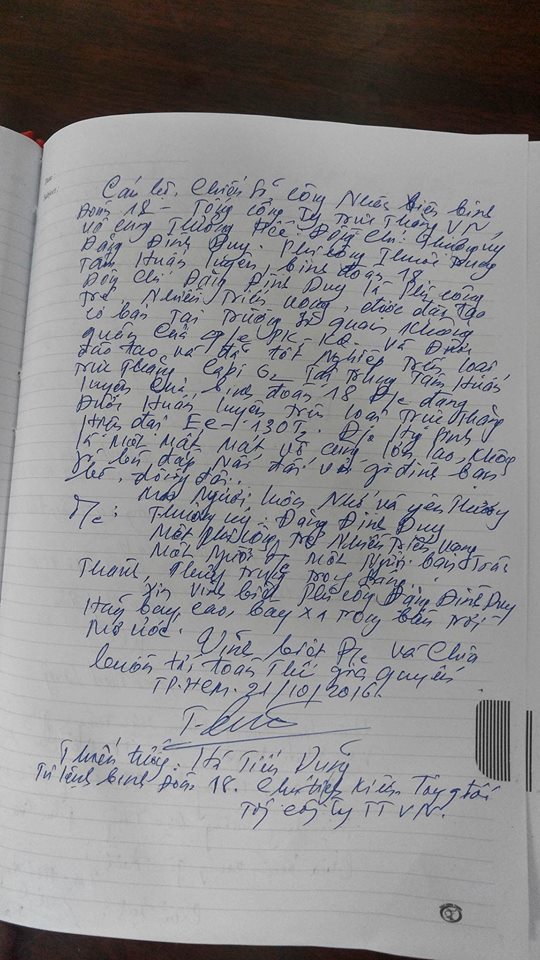 Cán bộ, Chiến sĩ công Nhân viên binh
Đoàn 18 - Tổng công Ty trực Thăng VN
vô cùng Thương tiếc Đồng chí Thượng úy
Đặng Đình Duy. Phi công Thuộc Trung
Tâm Huấn luyện, binh đoàn 18.
Đồng chí Đặng Đình Duy là Phi công
Trẻ, Nhiều Triển vọng, được đào tạo
cơ bản Tại Trường Sĩ quan Không
quân của q/c PK-KQ. và Được
đào tạo và đã tốt Nghiệp Trên loại
trực Thăng Cấp 6 Tại Trung Tâm Huấn
luyện của binh đoàn 18 Đ/c đang
Được Huấn luyện trên loại Trực Thăng
Hiện đại EC-130T2. Đ/c Hy sinh
là Một Mất Mát vô cùng lớn lao, không
gì bù đắp Nổi đối với gia đình bạn
bè, đồng đội.
Mọi Người luôn Nhớ và yêu Thương
Đ/c: Thượng úy Đặng Đình Duy
Một phi công trẻ Nhiều Triển vọng
Một Người Một Người bạn Trai
Thành, Thủy
Xin vĩnh biệt Phi công Đặng Đình Duy
Hãy bay cao, bay xa trong bầu trời
Mơ ước. Vĩnh biệt Đ/c và Chia
buồn tới toàn Thể gia quyến
TP-HCM. 21/10/2016.
Thiếu tướng. Hà Tiến Dũng
Tư lệnh binh Đoàn 18. Chủ tịch Kiêm Tổng giám đốc
Tổng công Ty TT VN.